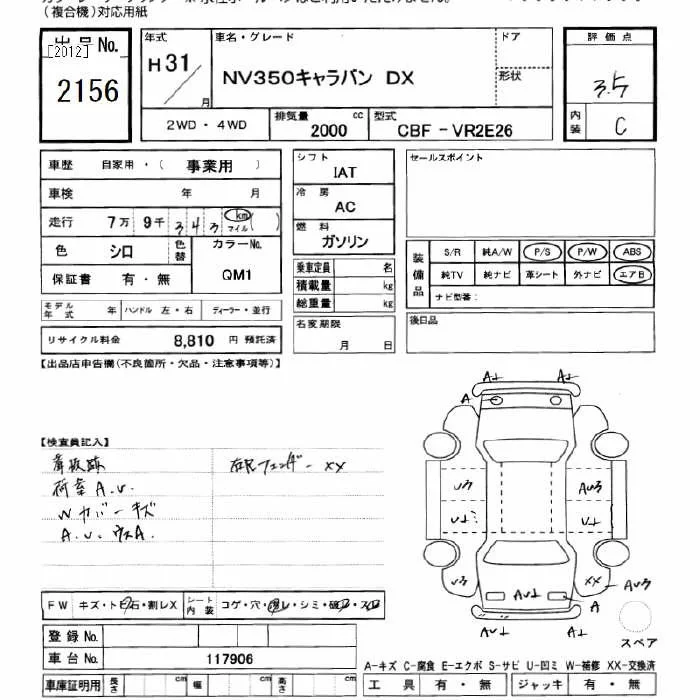 （複合機）対応用紙
出品 No.
[2012]
2156
年式
H31
月
車名・グレード
NV350キャラバン DX
ドア
形状
2WD・4WD
排気量 2000 cc
型式 CBF - VR2E26
評価点
3.5
内装
C
車歴 自家用・（ 事業用 ）
車検 年 月
走行 7万 9千 3 4 3 km マイル ( )
色 シロ 色替 カラーNo. QM1
保証書 有・無
モデル年式 年 ハンドル 左・右 ディーラー・並行
リサイクル料金 8,810 円 預託済
シフト
IAT
冷房
AC
燃料
ガソリン
乗車定員 名
積載量 kg
総重量 kg
名変期限
月 日
セールスポイント
装備品
S/R 純A/W P/S P/W ABS
純TV 純ナビ 革シート 外ナビ エアB
ナビ型番：
後日品
【出品店申告欄(不良箇所・欠品・注意事項等)】
【検査員記入】
荷室 A.U.
Wカバーキズ
フェンダー XX
A↓ A↓
A
U3 AU3
U↓ U↓
U3 AU↓ XX AU3
A
AU↓ A↓
スペア
FW キズ・トビ石・割レX
シート内装 コゲ・穴・スレ・シミ・破レ・スレ
登録 No.
車台 No. 117906
車庫証明用 長さ cm 幅 cm 高さ cm
A-キズ C-腐食 E-エクボ S-サビ U-凹ミ W-補修 XX-交換済
工具 有・無 ジャッキ 有・無